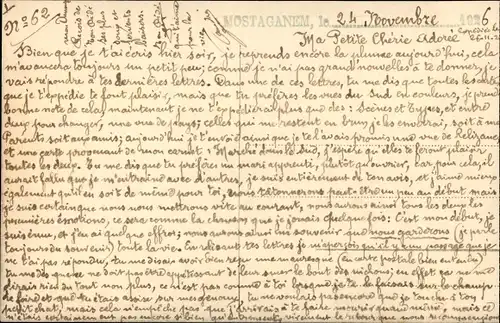 N° 62
MOSTAGANEM, le 24 Novembre 1926
Ma Petite Chérie Adorée
Bien que je t'aie écris hier soir, je reprends encore la plume aujourd'hui, cela
m'avancera toujours un petit peu; comme je n'ai pas grand nouvelles à te donner, je
vais répondre à tes dernières lettres. Dans une de ces lettres, tu me dis que toutes les cartes
que je t'expédie te font plaisir, mais que tu préfères les vues du Sud en couleurs, je prends
bonne note de cela, maintenant je ne t'expédierai plus que des: Scènes et Types, et entre
deux pour changer, une vue de pays; celles qui me restent en brun je les enverrai, soit à mes
Parents soit aux amis; aujourd'hui je t'envoie ainsi que je te l'avais promis une vue de Relizane
et une carte provenant de mon carnet: Marché dans le Sud, j'espère qu'elles te feront plaisir
toutes les deux. Tu me dis que tu préfères un mari apprenti, plutôt qu'ouvrier, car pour cela, il
aurait fallu que je m'entraîne avec d'autres, je suis entièrement de ton avis, et j'aime mieux
également qu'il en soit de même pour toi, nous tâtonnerons peut-être un peu au début mais
je suis certain que nous nous mettrons vite au courant, nous aurons ainsi tous les deux les
premières émotions, ce sera comme la chanson que je jouais quelque fois: C'est mon début, je
suis ému, et j'ai quelque effroi; nous aurons ainsi un souvenir que nous garderons (je parle
toujours du souvenir) toute la vie. En relisant tes lettres je m'aperçois qu'il y a un passage que je
ne t'ai pas répondu, tu me disais avoir bien reçu une mauresque (en carte postale bien entendu)
tu me dis que ce ne doit pas être appétissant de leur sucer le bout des nichons; en effet ça ne me
dirais rien du tout non plus, ce n'est pas comme à toi lorsque je te le faisais sur le champ
de foire et que tu étais assise sur mes genoux, tu me voulais pas encore que je touche à ton
petit chat, mais cela n'empêche pas que j'arrivais à le faire pourri quand même, mais ce
n'étais certainement pas encore si bien qu'autrement,